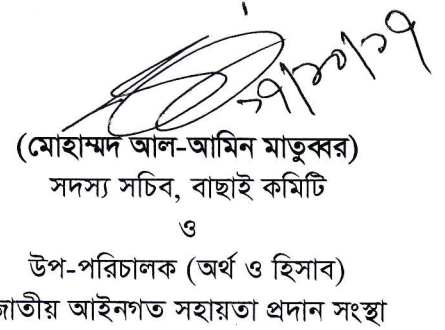 ২৭/১০/১৭
(মোহাম্মদ আল-আমিন মাতুব্বর)
সদস্য সচিব, বাছাই কমিটি
ও
উপ-পরিচালক (অর্থ ও হিসাব)
জাতীয় আইনগত সহায়তা প্রদান সংস্থা